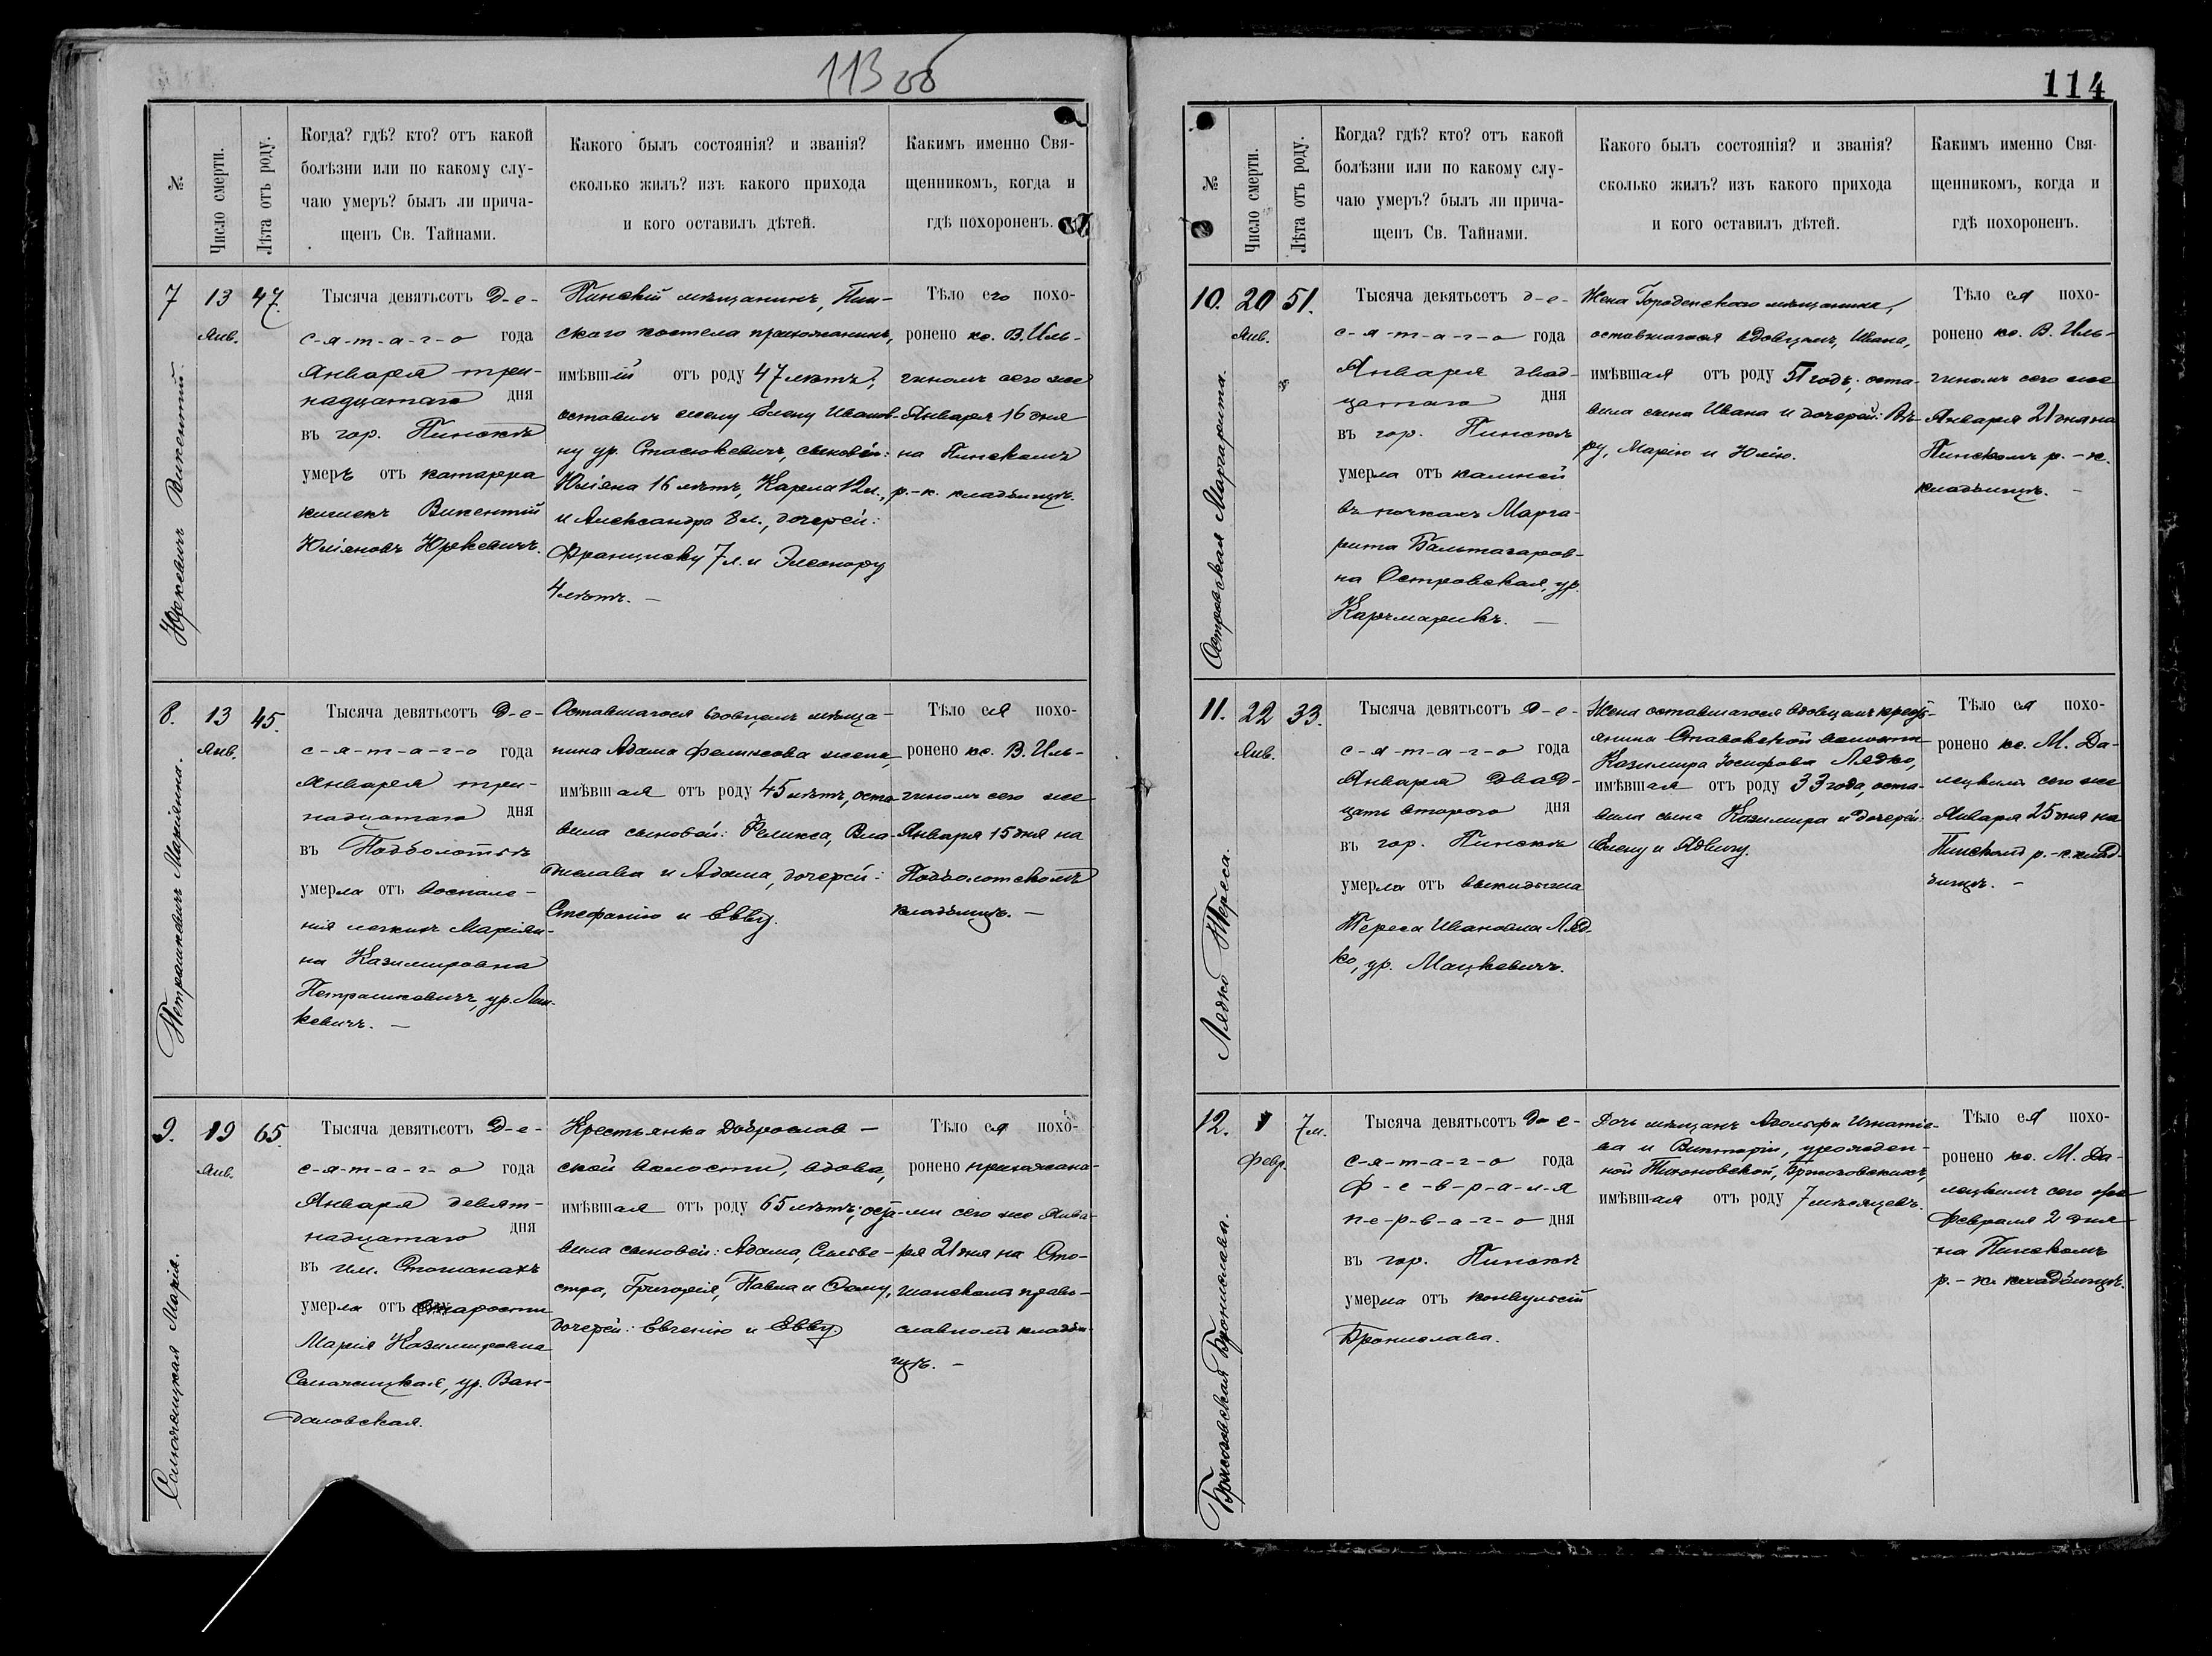 113 об
№
Число смерти.
Лѣта отъ роду.
Когда? гдѣ? кто? отъ какой
болѣзни или по какому слу-
чаю умеръ? былъ ли прича-
щенъ Св. Тайнами.
Какого былъ состоянія? и званія?
сколько жилъ? изъ какого прихода
и кого оставилъ дѣтей.
Какимъ именно Свя-
щенникомъ, когда и
гдѣ похороненъ.
7
Юркевичъ Викентій.
13
Янв.
47.
Тысяча девятьсотъ д-е-
с-я-т-а-г-о года
Января три-
надцатаго дня
въ гор. Пинскѣ
умеръ отъ катарра
кишекъ Викентій
Юліяновъ Юркевичъ.
Пинскій мѣщанинъ, Пин-
скаго костела прихожанинъ,
имѣвшій отъ роду 47 лѣтъ;
оставилъ жену Елену Иванов-
ну ур. Стасюкевичъ, сыновей:
Юліяна 16 лѣтъ, Карла 12 л.,
и Александра 8 л., дочерей:
Франциску 7 л. и Элеонору
4 лѣтъ. —
Тѣло его похо-
ронено кс. В. Иль-
гиномъ сего же
Января 16 дня
на Пинскомъ
р.-к. кладбищѣ.
8.
Петрашкевичъ Маріянна.
13
Янв.
45.
Тысяча девятьсотъ д-е-
с-я-т-а-г-о года
Января три-
надцатаго дня
въ Подболотьѣ
умерла отъ воспале-
нія легкихъ Маріян-
на Казимировна
Петрашкевичъ, ур. Лин-
кевичъ. —
Оставшагося вдовцемъ мѣща-
нина Адама Феликсова жена,
имѣвшая отъ роду 45 лѣтъ, оста-
вила сыновей: Феликса, Вла-
дислава и Адама, дочерей:
Стефанію и Евву.
Тѣло ея похо-
ронено кс. В. Иль-
гиномъ сего же
Января 15 дня на
Подболотскомъ
кладбищѣ. —
9.
Марія.
19
Янв.
65
Тысяча девятьсотъ д-е-
с-я-т-а-г-о года
Января девят-
надцатаго дня
въ им. Стошанахъ
умерла отъ старости
Марія Казимировна
ур. Ван-
даловская.
Крестьянка Доброслав-
ской волости, вдова,
имѣвшая отъ роду 65 лѣтъ; оста-
вила сыновей: Адама, Сильве-
стра, Григорія, Павла и Фому,
дочерей: Евгенію и Евву.
Тѣло ея похо-
ронено прихожана-
ми сего же Янва-
ря 21 дня на Сто-
шанскомъ право-
славномъ кладби-
щѣ. —
114
№
Число смерти.
Лѣта отъ роду.
Когда? гдѣ? кто? отъ какой
болѣзни или по какому слу-
чаю умеръ? былъ ли прича-
щенъ Св. Тайнами.
Какого былъ состоянія? и званія?
сколько жилъ? изъ какого прихода
и кого оставилъ дѣтей.
Какимъ именно Свя-
щенникомъ, когда и
гдѣ похороненъ.
10.
Островская Маргарита.
20
Янв.
51.
Тысяча девятьсотъ д-е-
с-я-т-а-г-о года
Января двад-
цатаго дня
въ гор. Пинскѣ
умерла отъ камней
въ почкахъ Марга-
рита Бальтазаров-
на Островская, ур.
Карчмарикъ. —
Жена Городенскаго мѣщанина,
оставшагося вдовцемъ, Ивана,
имѣвшая отъ роду 51 годъ; оста-
вила сына Ивана и дочерей: Вѣ-
ру, Марію и Юлію.
Тѣло ея похо-
ронено кс. В. Иль-
гиномъ сего же
Января 21 дня на
Пинскомъ р.-к.
кладбищѣ. —
11.
Лядко Тереса.
22
Янв.
33.
Тысяча девятьсотъ д-е-
с-я-т-а-г-о года
Января двад-
цать второго дня
въ гор. Пинскѣ
умерла отъ выкидыша
Тереса Ивановна Ляд-
ко, ур. Мацкевичъ.
Жена оставшагося вдовцемъ кресть-
янина Ставокской волости
Казимира Іосифова Лядко,
имѣвшая отъ роду 33 года, оста-
вила сына Казимира и дочерей:
Елену и Ядвигу.
Тѣло ея похо-
ронено кс. М. Да-
лецкимъ сего же
Января 25 дня на
Пинскомъ р.-к. клад-
бищѣ. —
12.
Бржозовская Бронислава.
1
Февр.
7 м.
Тысяча девятьсотъ д-е-
с-я-т-а-г-о года
Ф-е-в-р-а-л-я
п-е-р-в-а-г-о дня
въ гор. Пинскѣ
умерла отъ конвульсій
Бронислава.
Дочь мѣщанъ Адольфа Игнатіе-
ва и Викторіи, урожден-
ной Тихоновской, Бржозовскихъ,
имѣвшая отъ роду 7 мѣсяцевъ.
Тѣло ея похо-
ронено кс. М. Да-
лецкимъ сего же
Февраля 2 дня
на Пинскомъ
р.-к. кладбищѣ.